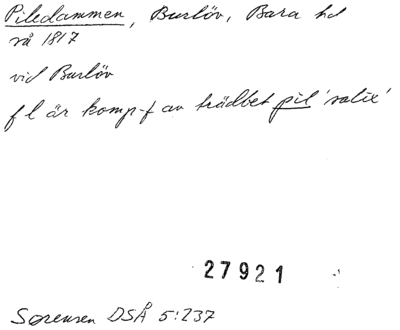 Piledammen, Burlöv, Bara hd
så 1817
vid Burlöv
f l är komp-f av trädbet pil 'salix'
27921
Sørensen DSÅ 5:237